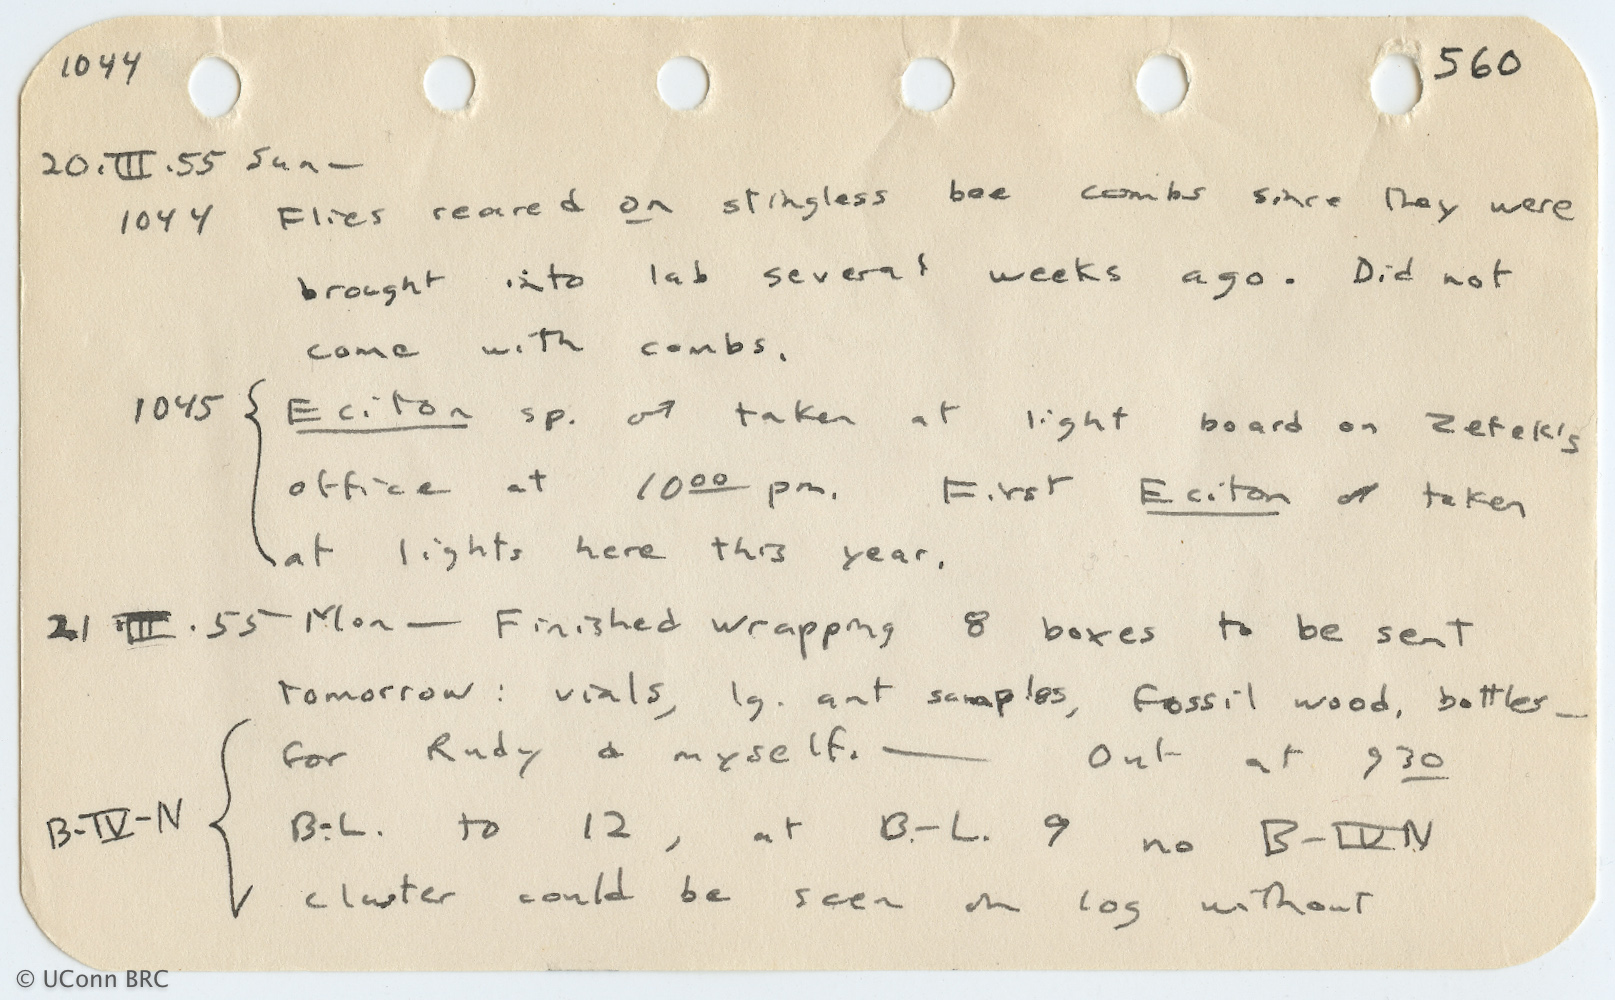 1044 560
20.III.55 Sun—
1044 Flies reared on stingless bee combs since they were
brought into lab several weeks ago. Did not
come with combs.
1045 Eciton sp. ♂ taken at light board on Zetek's
office at 10⁰⁰ pm. First Eciton ♂ taken
at lights here this year.
21 III.55 Mon— Finished wrapping 8 boxes to be sent
tomorrow: vials, lg. ant samples, fossil wood, bottles—
for Rudy & myself.— Out at 9³⁰
B-IV-N B-L. to 12, at B-L. 9 no B-IV-N
cluster could be seen on log without
© UConn BRC